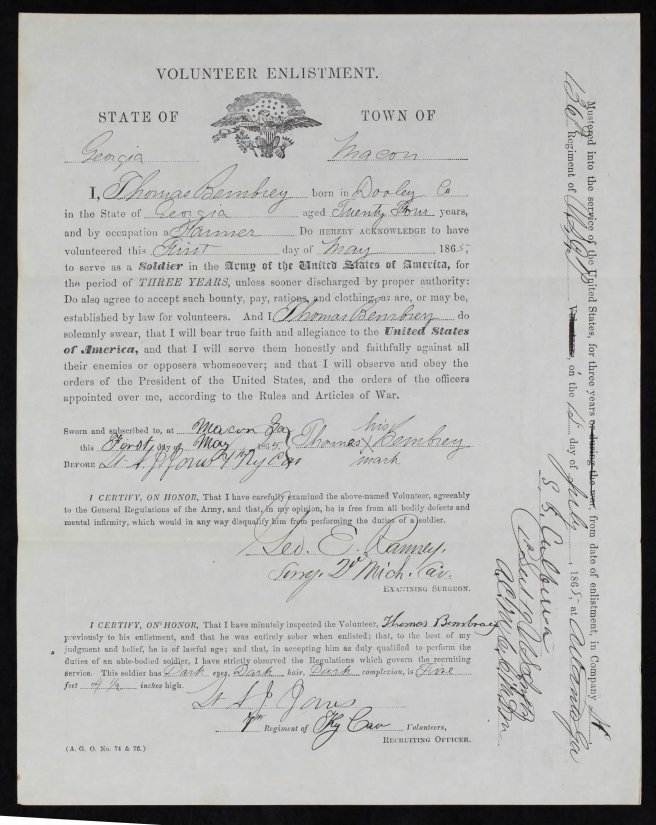 VOLUNTEER ENLISTMENT.
STATE OF TOWN OF
Georgia Macon
I, Thomas Bembrey born in Dooley Co
in the State of Georgia aged Twenty Four years,
and by occupation a Farmer DO HEREBY ACKNOWLEDGE to have
volunteered this First day of May 1865,
to serve as a Soldier in the Army of the United States of America, for
the period of THREE YEARS, unless sooner discharged by proper authority:
Do also agree to accept such bounty, pay, rations, and clothing, as are, or may be,
established by law for volunteers. And I Thomas Bembrey do
solemnly swear, that I will bear true faith and allegiance to the United States
of America, and that I will serve them honestly and faithfully against all
their enemies or opposers whomsoever; and that I will observe and obey the
orders of the President of the United States, and the orders of the officers
appointed over me, according to the Rules and Articles of War.
Sworn and subscribed to, at Macon Ga
this First day of May 1865,
BEFORE Lt S. J. Jones 7th Ky Cav
Thomas his Bembrey
mark
I CERTIFY, ON HONOR, That I have carefully examined the above-named Volunteer, agreeably
to the General Regulations of the Army, and that, in my opinion, he is free from all bodily defects and
mental infirmity, which would in any way disqualify him from performing the duties of a soldier.
Geo. E. Ranney,
Surg. 2d Mich. Cav.
EXAMINING SURGEON.
I CERTIFY, ON HONOR, That I have minutely inspected the Volunteer, Thomas Bembrey
previously to his enlistment, and that he was entirely sober when enlisted; that, to the best of my
judgment and belief, he is of lawful age; and that, in accepting him as duly qualified to perform the
duties of an able-bodied soldier, I have strictly observed the Regulations which govern the recruiting
service. This soldier has Dark eyes, Dark hair, Dark complexion, is Five
feet 4 ½ inches high.
Lt S. J. Jones
7th Regiment of Ky Cav Volunteers,
RECRUITING OFFICER.
(A. G. O. No. 74 & 76.)
Mustered into the service of the United States, for three years or during the war, from date of enlistment, in Company
Regiment of on the 1st day of July, 1865, at